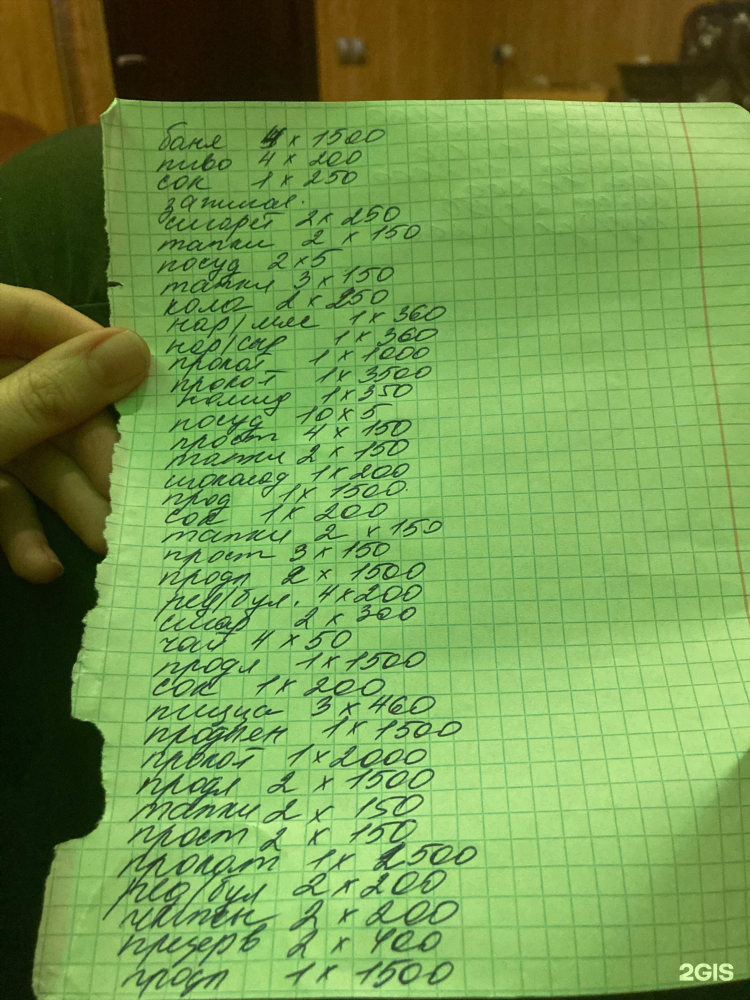 баня 4 x 1500
пиво 4 x 200
сок 1 x 250
зажигал.
сигарет 2 x 250
тапки 2 x 150
посуд 2 x 5
тапки 3 x 150
кола 2 x 250
нар/мяс 1 x 360
нар/сыр 1 x 360
прокат 1 x 1000
прокат 1 x 3500
1 x 350
посуд 10 x 5
прост 4 x 150
тапки 2 x 150
шоколад 1 x 200
прод 1 x 1500
сок 1 x 200
тапки 2 x 150
прост 3 x 150
продл 2 x 1500
ред/бул. 4 x 200
сигар 2 x 300
чай 4 x 50
продл 1 x 1500
сок 1 x 200
пицца 3 x 460
продлен 1 x 1500
прокат 1 x 2000
продл 2 x 1500
тапки 2 x 150
прост 2 x 150
прокат 1 x 2500
ред/бул 2 x 200
2 x 200
презерв 2 x 400
продл 1 x 1500
2GIS